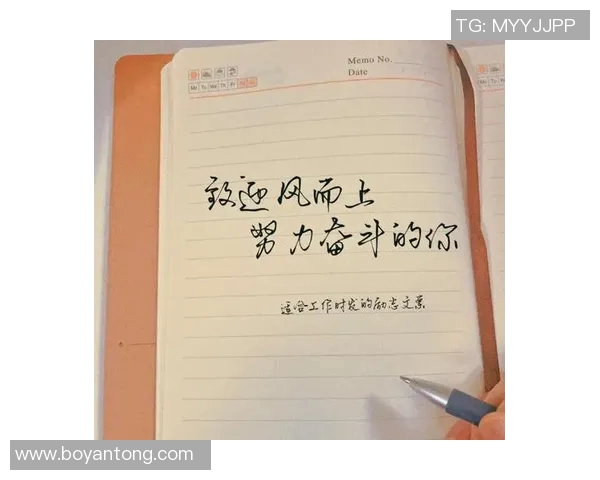 TG: MYYJJPP
Memo No.
Date
Mo Tu We Th Fr Sa Su
致迎风而上
努力奋斗的你
适合工作时发的励志文案
www.boyantong.com